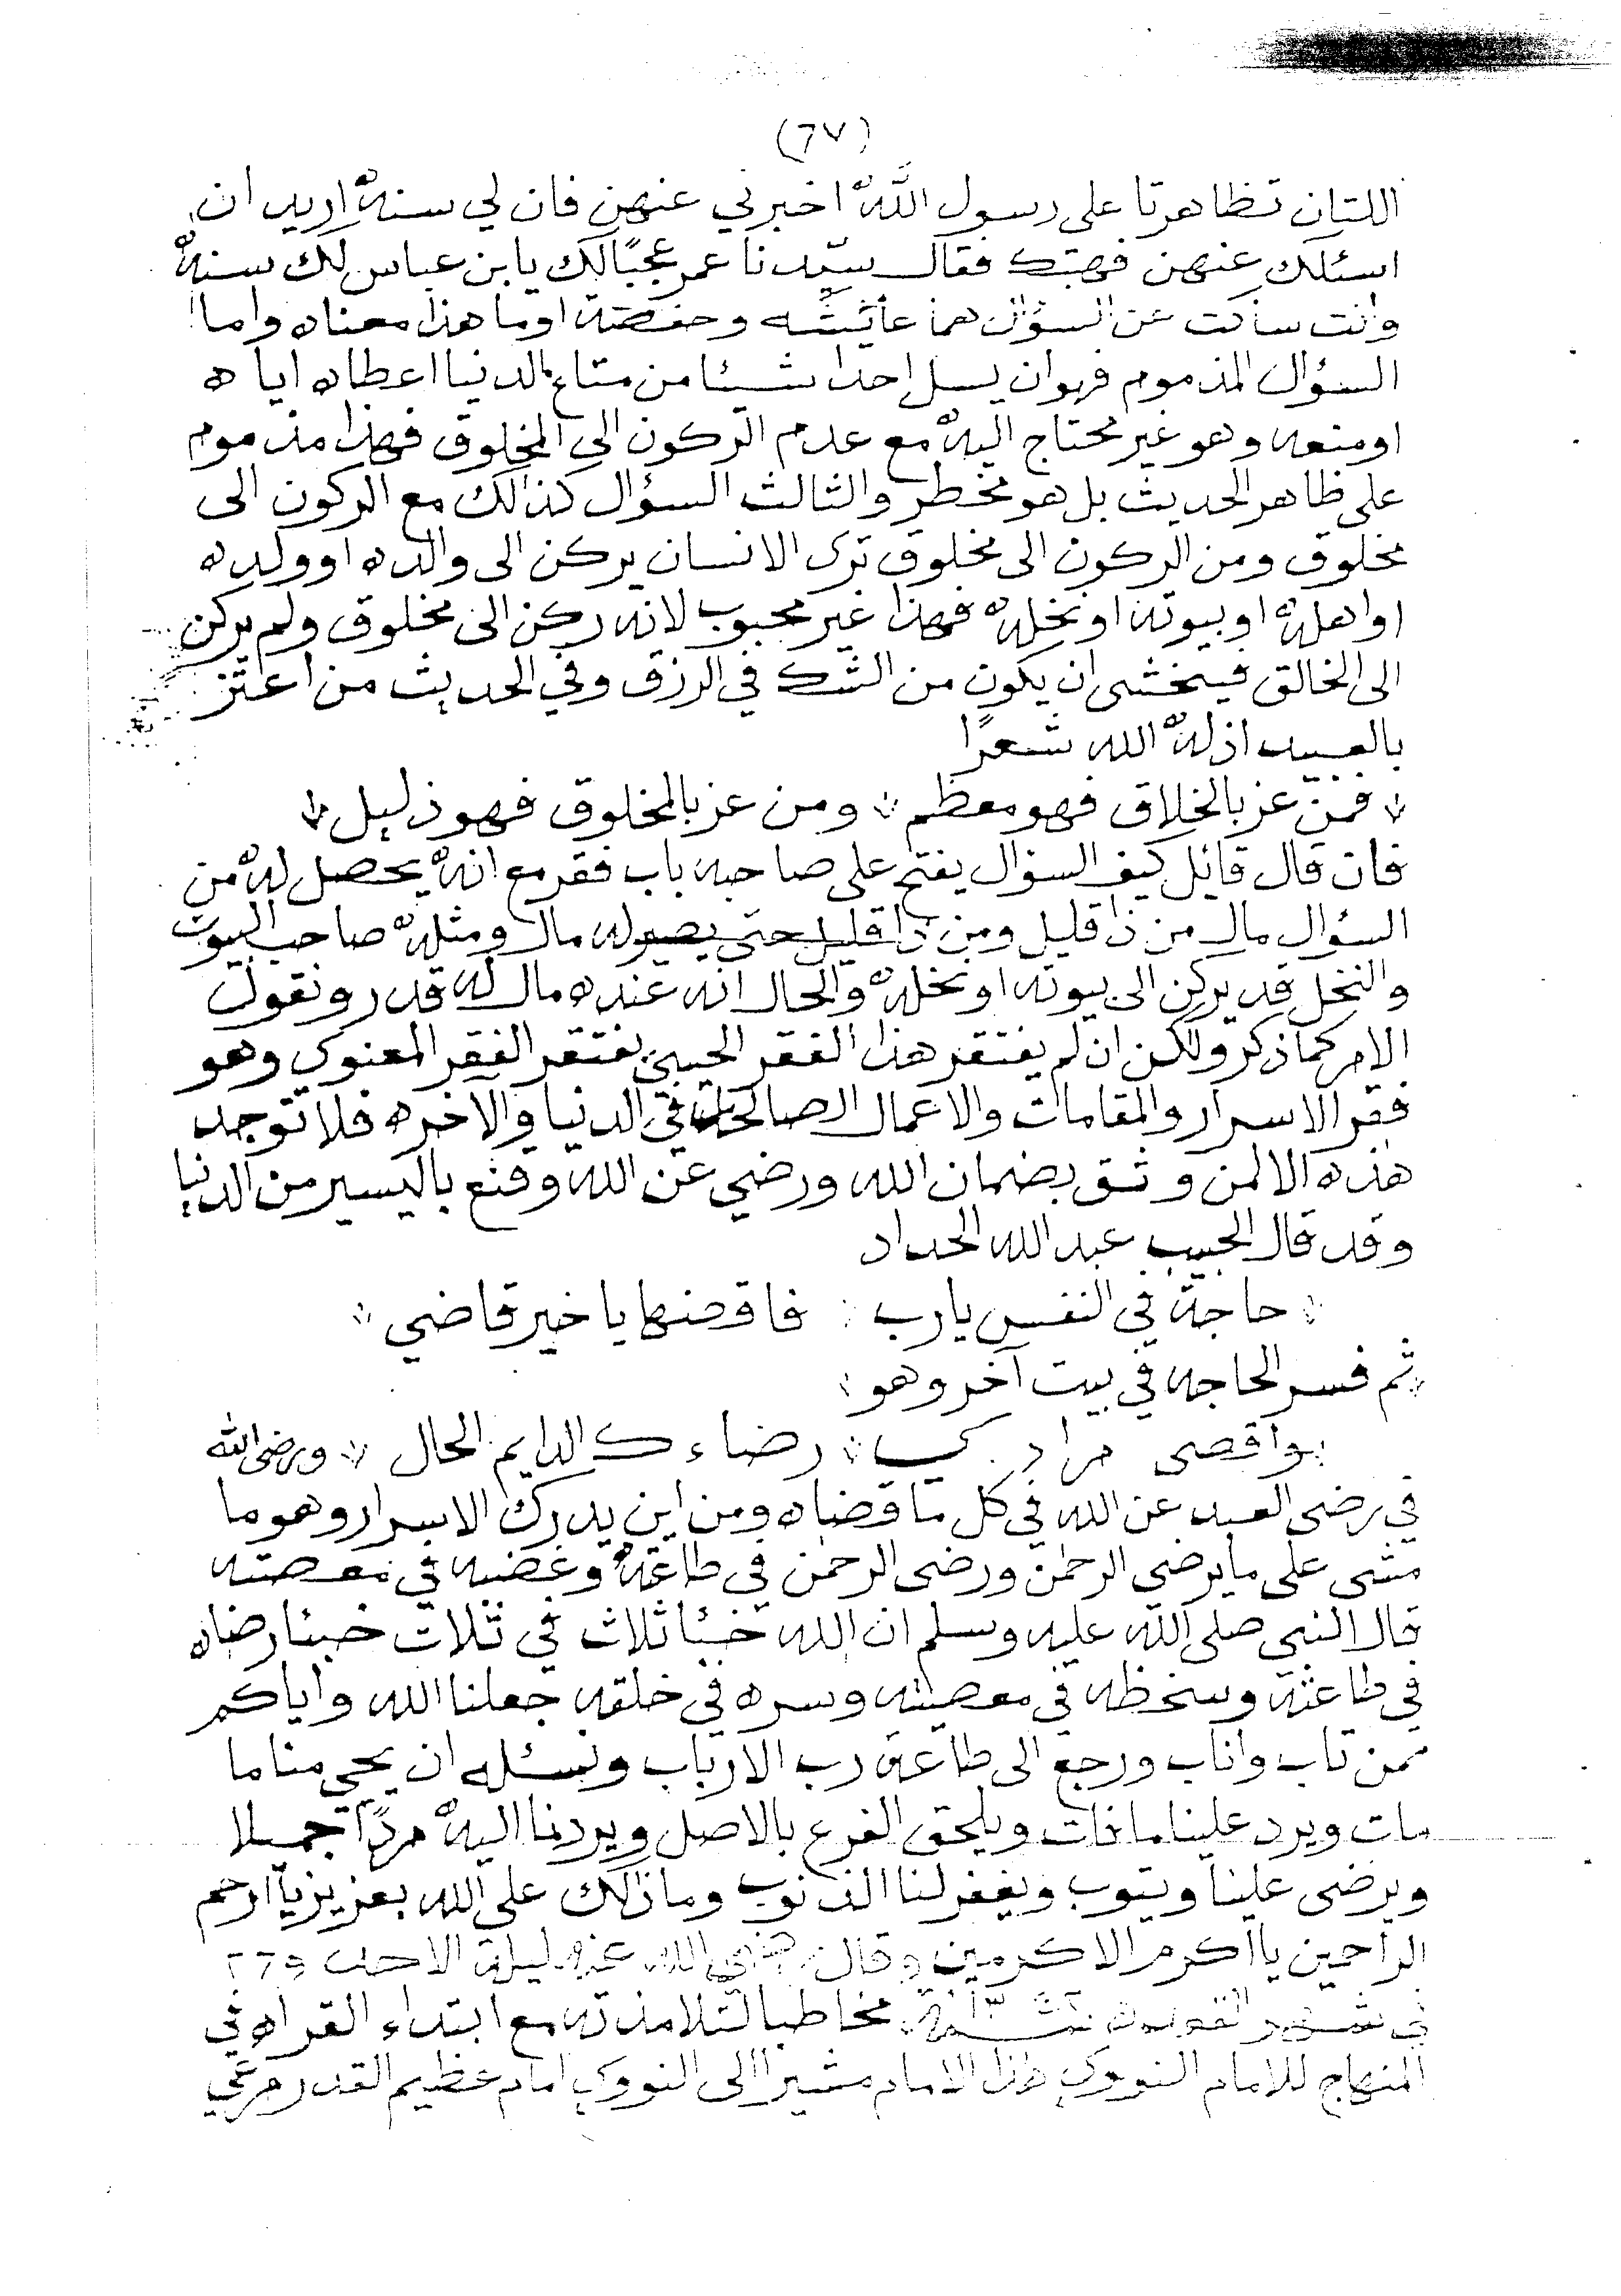 (٦٧)
اللتان تظاهرتا على رسول الله اخبرني عنهن فان لي سنة اريد ان
اسئلك عنهن فهبتك فقال سيّدنا عمر عجبًا لك يا بن عباس لك سنة
وانت ساكت عن السؤال هما عائشه وحفصة او ما هذا معناه واما
السؤال المذموم فهو ان يسل احدا شيئا من متاع الدنيا اعطاه اياه
او منعه وهو غير محتاج اليه مع عدم الركون الى المخلوق فهذا مذموم
على ظاهر الحديث بل هو مخطر والثالث السؤال كذالك مع الركون الى
مخلوق ومن الركون الى مخلوق ترى الانسان يركن الى والده او ولده
او اهله او بيوته او نخله فهذا غير محبوب لانه ركن الى مخلوق ولم يركن
الى الخالق فيخشى ان يكون من الشك في الرزق وفي الحديث من اعتز
بالعبيد اذله الله شعرًا
فمن عز بالخلاق فهو معظم ومن عز بالمخلوق فهو ذليل
فان قال قائل كيف السؤال يفتح على صاحبه باب فقر مع انه يحصل له من
السؤال مال من ذا قليل ومن ذا قليل حتى يصير له مال ومثله صاحب البيوت
والنخل قد يركن الى بيوته او نخله والحال انه عنده مال له قدر ونقول
الامر كما ذكر ولكن ان لم يفتقر هذا الفقر الحسي يفتقر الفقر المعنوي وهو
فقر الاسرار والمقامات والاعمال الصالحات في الدنيا والاخره فلا توجد
هذه الا لمن وثق بضمان الله ورضي عن الله وقنع باليسير من الدنيا
وقد قال الحبيب عبد الله الحداد
حاجة في النفس يارب فاقضها يا خير قاضي
ثم فسر الحاجه في بيت آخر وهو
واقصى مرادي رضاءك الدايم الحال ورضى الله
في رضى العبد عن الله في كل ما قضاه ومن اين يدرك الاسرار وهو ما
مشى على ما يرضي الرحمن ورضى الرحمن في طاعته وغضبه في معصيته
قال النبي صلى الله عليه وسلم ان الله خبئا ثلاث في ثلاث خبئا رضاه
في طاعته وسخطه في معصيته وسره في خلقه جعلنا الله واياكم
ممن تاب واناب ورجع الى طاعة رب الارباب ونسئله ان يحي منا ما
مات ويرد علينا ما فات ويلحق الفرع بالاصل ويردنا اليه مردًا جميلا
ويرضى علينا ويتوب ويغفر لنا الذنوب وما ذالك على الله بعزيز يا ارحم
الراحمين يا اكرم الاكرمين وقال رضي الله عنه ليلة الاحد
في شهر القعدة مخاطبا لتلامذته مع ابتداء القراه في
المنهاج للامام النووي هذا الامام مشيرا الى النووي امام عظيم القدر